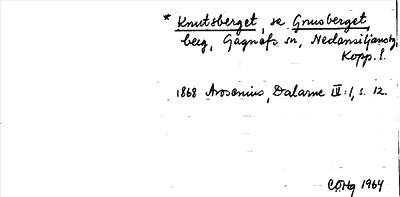 * Knutsberget, se Gnusberget,
berg, Gagnefs sn, Nedansiljans tg,
Kopp. l.
1868 Arosenius, Dalarne IV:1, s. 12.
1964